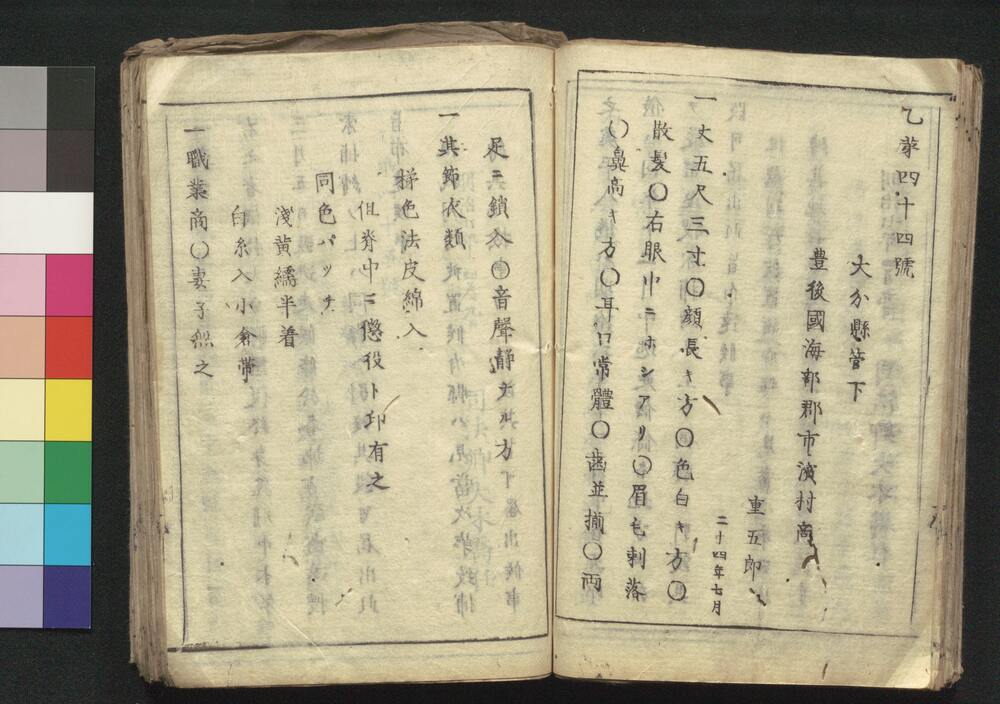 乙第四十四號
大分縣管下
豊後國海部郡市濵村商
重五郎
二十四年七月
一丈五尺三寸〇顔長キ方〇色白キ方〇
散髪〇右眼巾ニホシアリ〇眉毛剃落
〇鼻高キ方〇耳口常體〇歯並揃〇両
足ニ鎖仝〇音聲静ナル方
一其節衣類
桛色法皮綿入
但脊中ニ懲役ト印有之
同色パッチ
淺黄繻半着
白糸入小倉帯
一職業商〇妻子無之